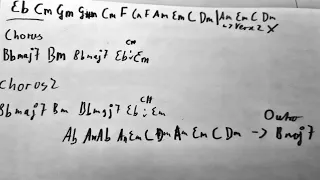 Eb Cm Gm G#m Cm F Cm F Am Em C Dm | Am Em C Dm
-> Verse 2 X
Chorus
Cm
Bbmaj7 Bm Bbmaj7 Eb Em
Chorus 2
Bbmaj7 Bm Bbmaj7 Eb Em
Ab Am Ab Am Em C Dm Am Em C Dm -> Bmaj7
Outro